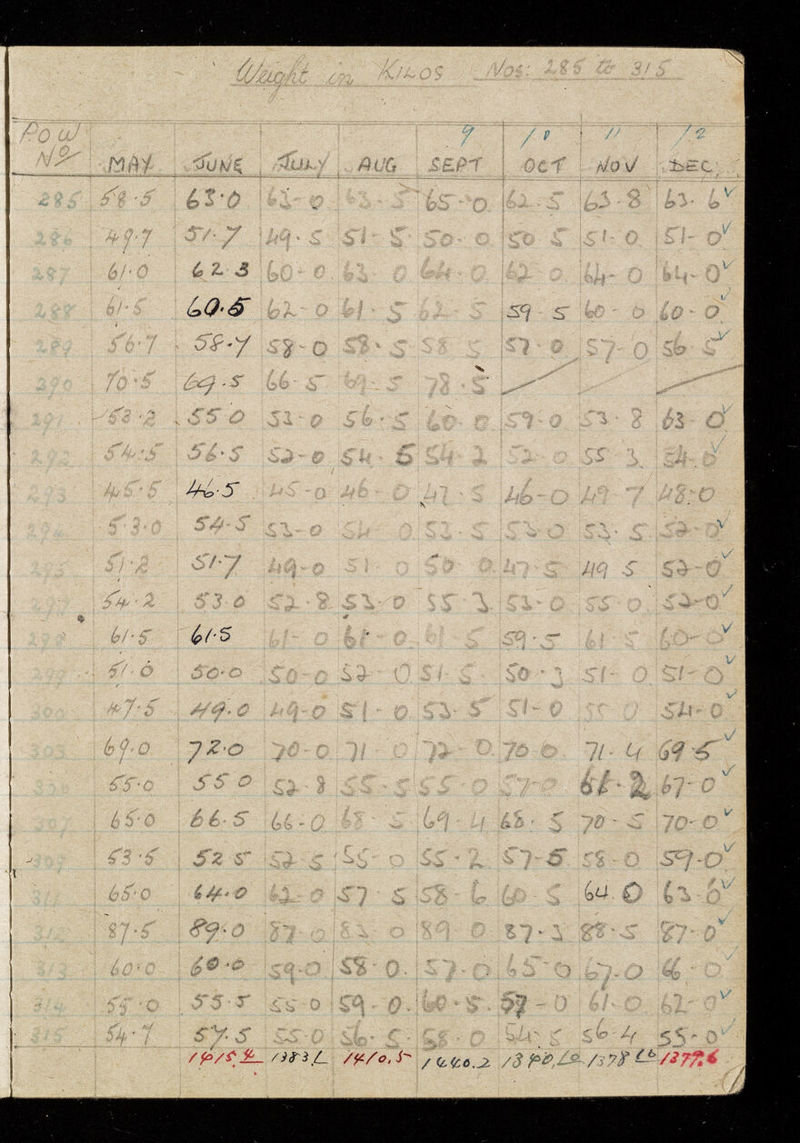 Weight in KILOS Nos: 285 to 315
9 10 11 12
POW No MAY JUNE JULY AUG SEPT OCT NOV DEC
285 58.5 63.0 63-0 63-5 65-0 62.5 63-8 63.6 ✓
286 49.7 51.7 49.5 51-5 50-0 50 5 51-0 51-0 ✓
287 61.0 62 3 60-0 63 0 64-0 62 0 64-0 64-0 ✓
288 61.5 60.5 62-0 61.5 62-5 59-5 60-0 60-0 ✓
289 56.7 58.7 58-0 58.5 58 5 57.0 57-0 56 5 ✓
290 70.5 69.5 66-5 69-5 78.5
291 53.2 55 0 53-0 56.5 60-0 59-0 53-8 63-0 ✓
292 54.5 56.5 52-0 54.5 54-2 52-0 55 3 54.0 ✓
293 45.5 46.5 45-0 46-0 47.5 46-0 49 7 48-0
294 53.0 54-5 53-0 54 0 53-5 53 0 53.5 52-0 ✓
295 51.2 51.7 49-0 51 0 50 0 47-5 49 5 52-0 ✓
297 54.2 53 0 52.8 53-0 55 3 53-0 55 0 52-0 ✓
298 61.5 61.5 61-0 61-0 61-5 59.5 61 5 60-0 ✓
299 51.0 50.0 50-0 52-0 51-5 50-3 51-0 51-0 ✓
300 47.5 49.0 49-0 51-0 53-5 51-0 55 0 54-0 ✓
303 69.0 72.0 70-0 71-0 72-0 70 0 71-4 69 5 ✓
306 55.0 55 0 52-8 55-5 55-0 57-0 61.2 67-0 ✓
307 65.0 66.5 66-0 68-5 69-4 68.5 70-5 70-0 ✓
309 53.5 52 5 52 5 55-0 55-2 57-5 58-0 59-0 ✓
311 65.0 64.0 62-0 57 5 58-6 60-5 64.0 63.0 ✓
312 87.5 89.0 87-0 83 0 89 0 87-3 88-5 87-0 ✓
313 60.0 60.0 59-0 58-0 57-0 65-0 67-0 66-0 ✓
314 55.0 55.5 55-0 59-0 60-5 57-0 61-0 62-0 ✓
315 54.7 57.5 55-0 56-5 58-0 54-5 56-4 55-0 ✓
1415.4 1383.1 1410.5 1440.2 1379.6